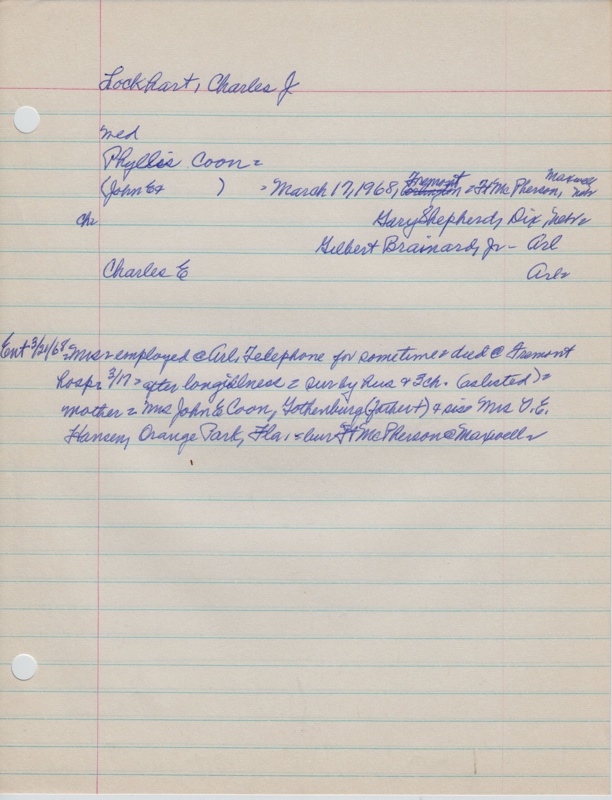 Lockhart, Charles J
wed
Phyllis Coon =
(John E & ) = March 17, 1968, Fremont = Ft McPherson, Maxwell, nebr
ch Gary Shepherd, Dix, nebr =
Gilbert Brainard, Jr - Arl
Charles E Arl =
Ent 3/21/68 = Mrs = employed @ Arl. Telephone for sometime = died @ Fremont
hosp = 3/17 = after long illness = sur by hus & 3 ch. (as listed) =
mother = Mrs John E Coon, Gothenburg (father †) & sis = Mrs V. E.
Hansen, Orange Park, Fla, = bur Ft McPherson @ Maxwell =